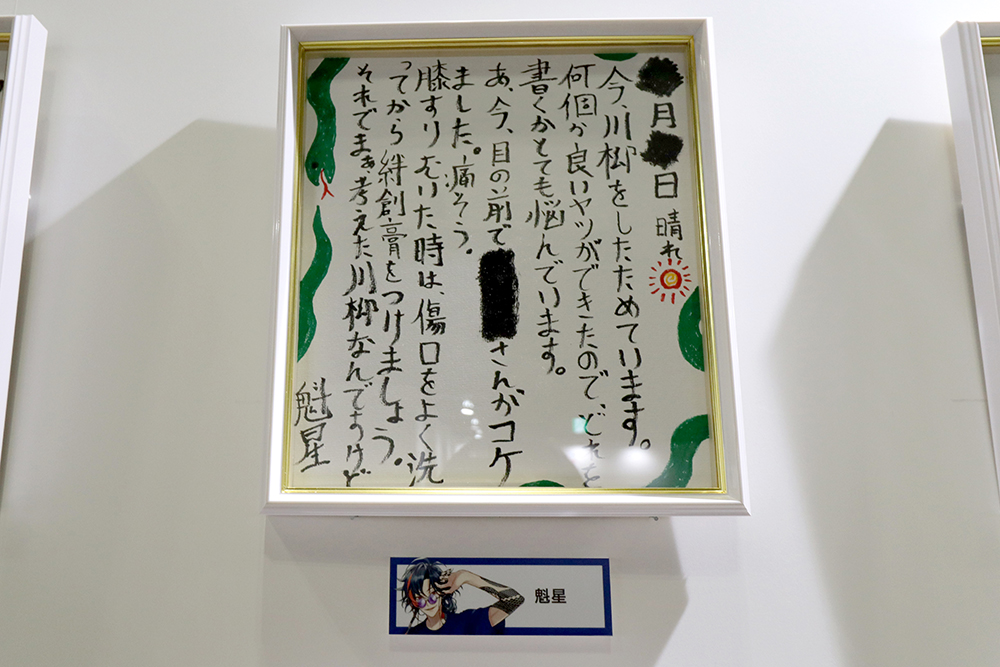 月 日 晴れ
今、川柳をしたためています。
何個か良いヤツができたので、どれを
書くかとても悩んでいます。
あ、今、目の前で さんがコケ
ました。痛そう。
膝すりむいた時は、傷口をよく洗
ってから絆創膏をつけましょう。
それでまぁ、考えた川柳なんですけど
魁星
魁星